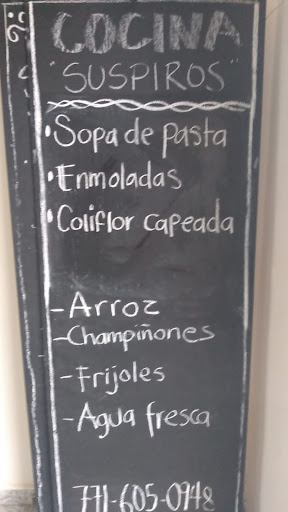 COCINA
"SUSPIROS"
•Sopa de pasta
•Enmoladas
•Coliflor capeada
-Arroz
-Champiñones
-Frijoles
-Agua fresca
771-605-0948